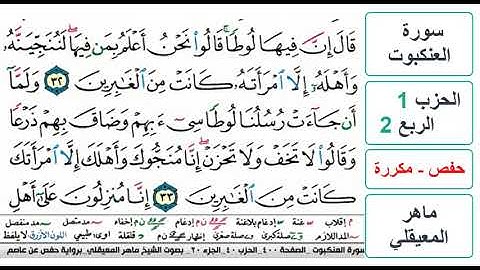 قَالَ إِنَّ فِيهَا لُوطًا ۚ قَالُوا۟ نَحْنُ أَعْلَمُ بِمَن فِيهَا ۖ لَنُنَجِّيَنَّهُۥ
وَأَهْلَهُۥٓ إِلَّا ٱمْرَأَتَهُۥ كَانَتْ مِنَ ٱلْغَـٰبِرِينَ ٣٢ وَلَمَّآ
أَن جَآءَتْ رُسُلُنَا لُوطًا سِىٓءَ بِهِمْ وَضَاقَ بِهِمْ ذَرْعًا
وَقَالُوا۟ لَا تَخَفْ وَلَا تَحْزَنْ ۖ إِنَّا مُنَجُّوكَ وَأَهْلَكَ إِلَّا ٱمْرَأَتَكَ
كَانَتْ مِنَ ٱلْغَـٰبِرِينَ ٣٣ إِنَّا مُنزِلُونَ عَلَىٰٓ أَهْلِ
سورة
العنكبوت
الحزب 1
الربع 2
حفص - مكررة
ماهر
المعيقلي
سورة العنكبوت - الصفحة ٤٠٠ - الحزب ٤٠ - الجزء ٢٠ - بصوت الشيخ ماهر المعيقلي - برواية حفص عن عاصم